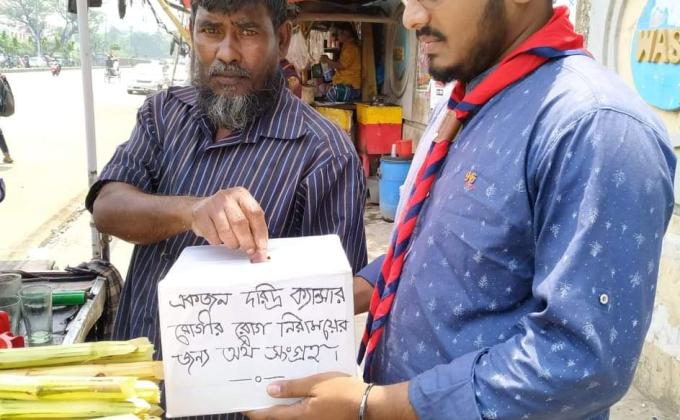 WAS
একজন দরিদ্র ক্যান্সার
রোগীর রোগ নিরাময়ের
জন্য অর্থ সংগ্রহ।
—০—